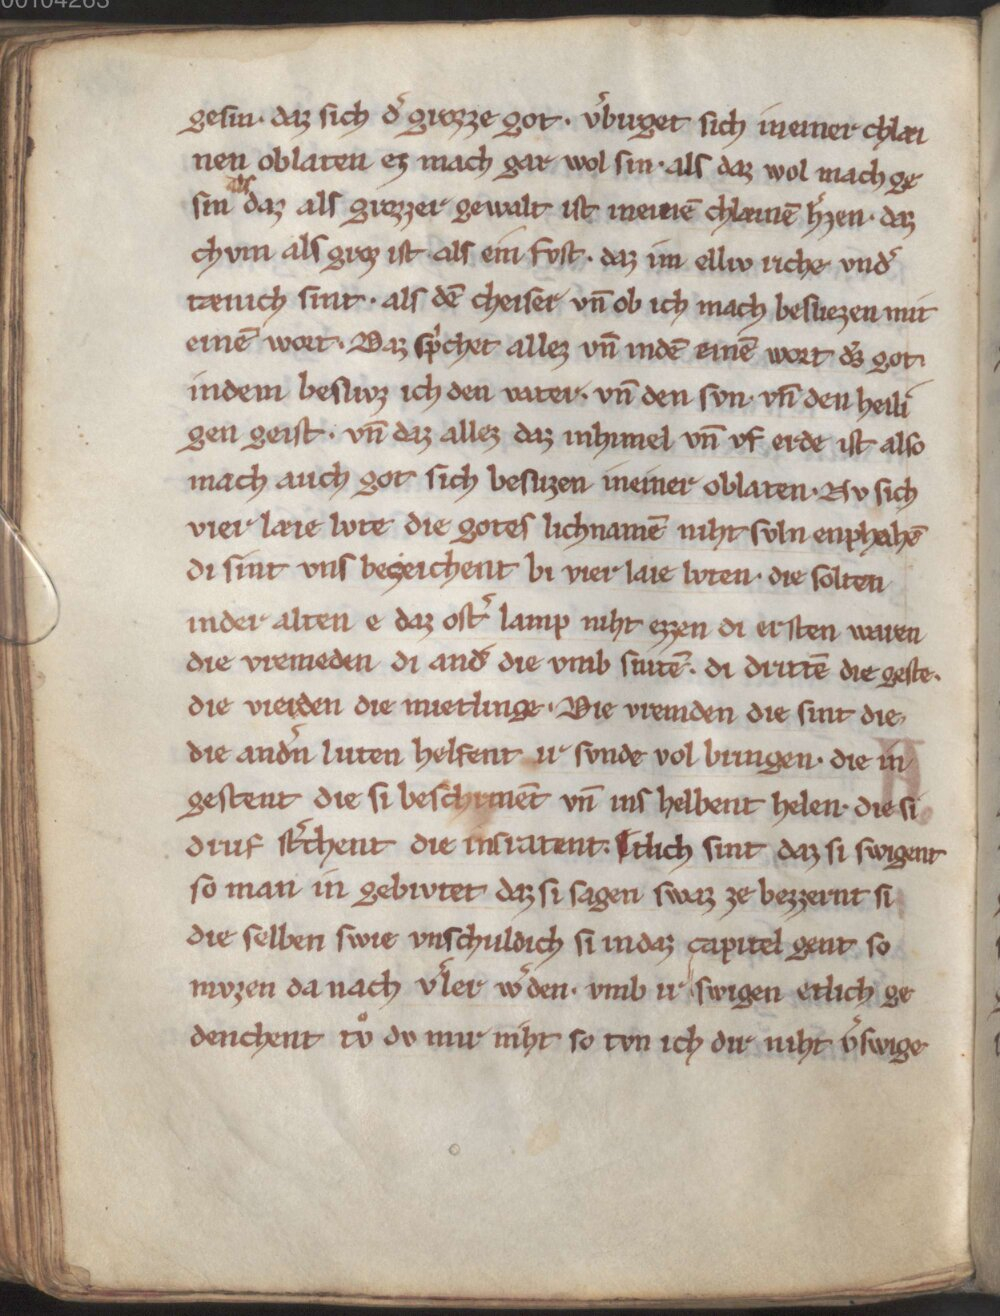 gesin· daz sich dˀ grozze got· vˀbirget sich in einer chlæi
nen oblaten ez mach gar wol sin· als daz wol mach ge
sin daz als grozzer gewalt ist in einē chlæinē hˀzen· daz
chvm als groz ist als ein fvst· daz im elliv riche vndˀ
tænich sint· als dē cheiser vn̄ ob ich mach besliezen mit
einē wort· Daz sprichet allez vn̄ in dē einē wort dˀs got
in dem besliuz ich den vater· vn̄ den svn· vn̄ den heili
gen geist· vn̄ daz allez daz in himel vn̄ vf erde ist also
mach auch got sich beslizen in einer oblaten· Nv sich
vier læie lvte die gotes lichnamē niht svln enphahē
di sint vns bezeichent bi vier laie lvten· die solten
in der alten e daz ostˀ lamp niht ezzen di ersten waren
die vremeden di andˀ die vmb snitē· di drittē die geste·
die vierden die mietlinge· Die vremden die sint die
die andˀn luten helfent ir svnde vol bringen· die in
gestent die si beschirment vn̄ ins helbent helen· die si
druf sterchent die ins ratent· Etlich sint daz si swigent
so man in gebivtet daz si sagen swaz ze bezzernt si
die selben swie vnschuldich si in daz capitel gent so
mvzen da nach vˀler wˀden· vmb ir swigen etlich ge
denchent tvͦ dv mir niht so tvn ich dir niht vˀswige